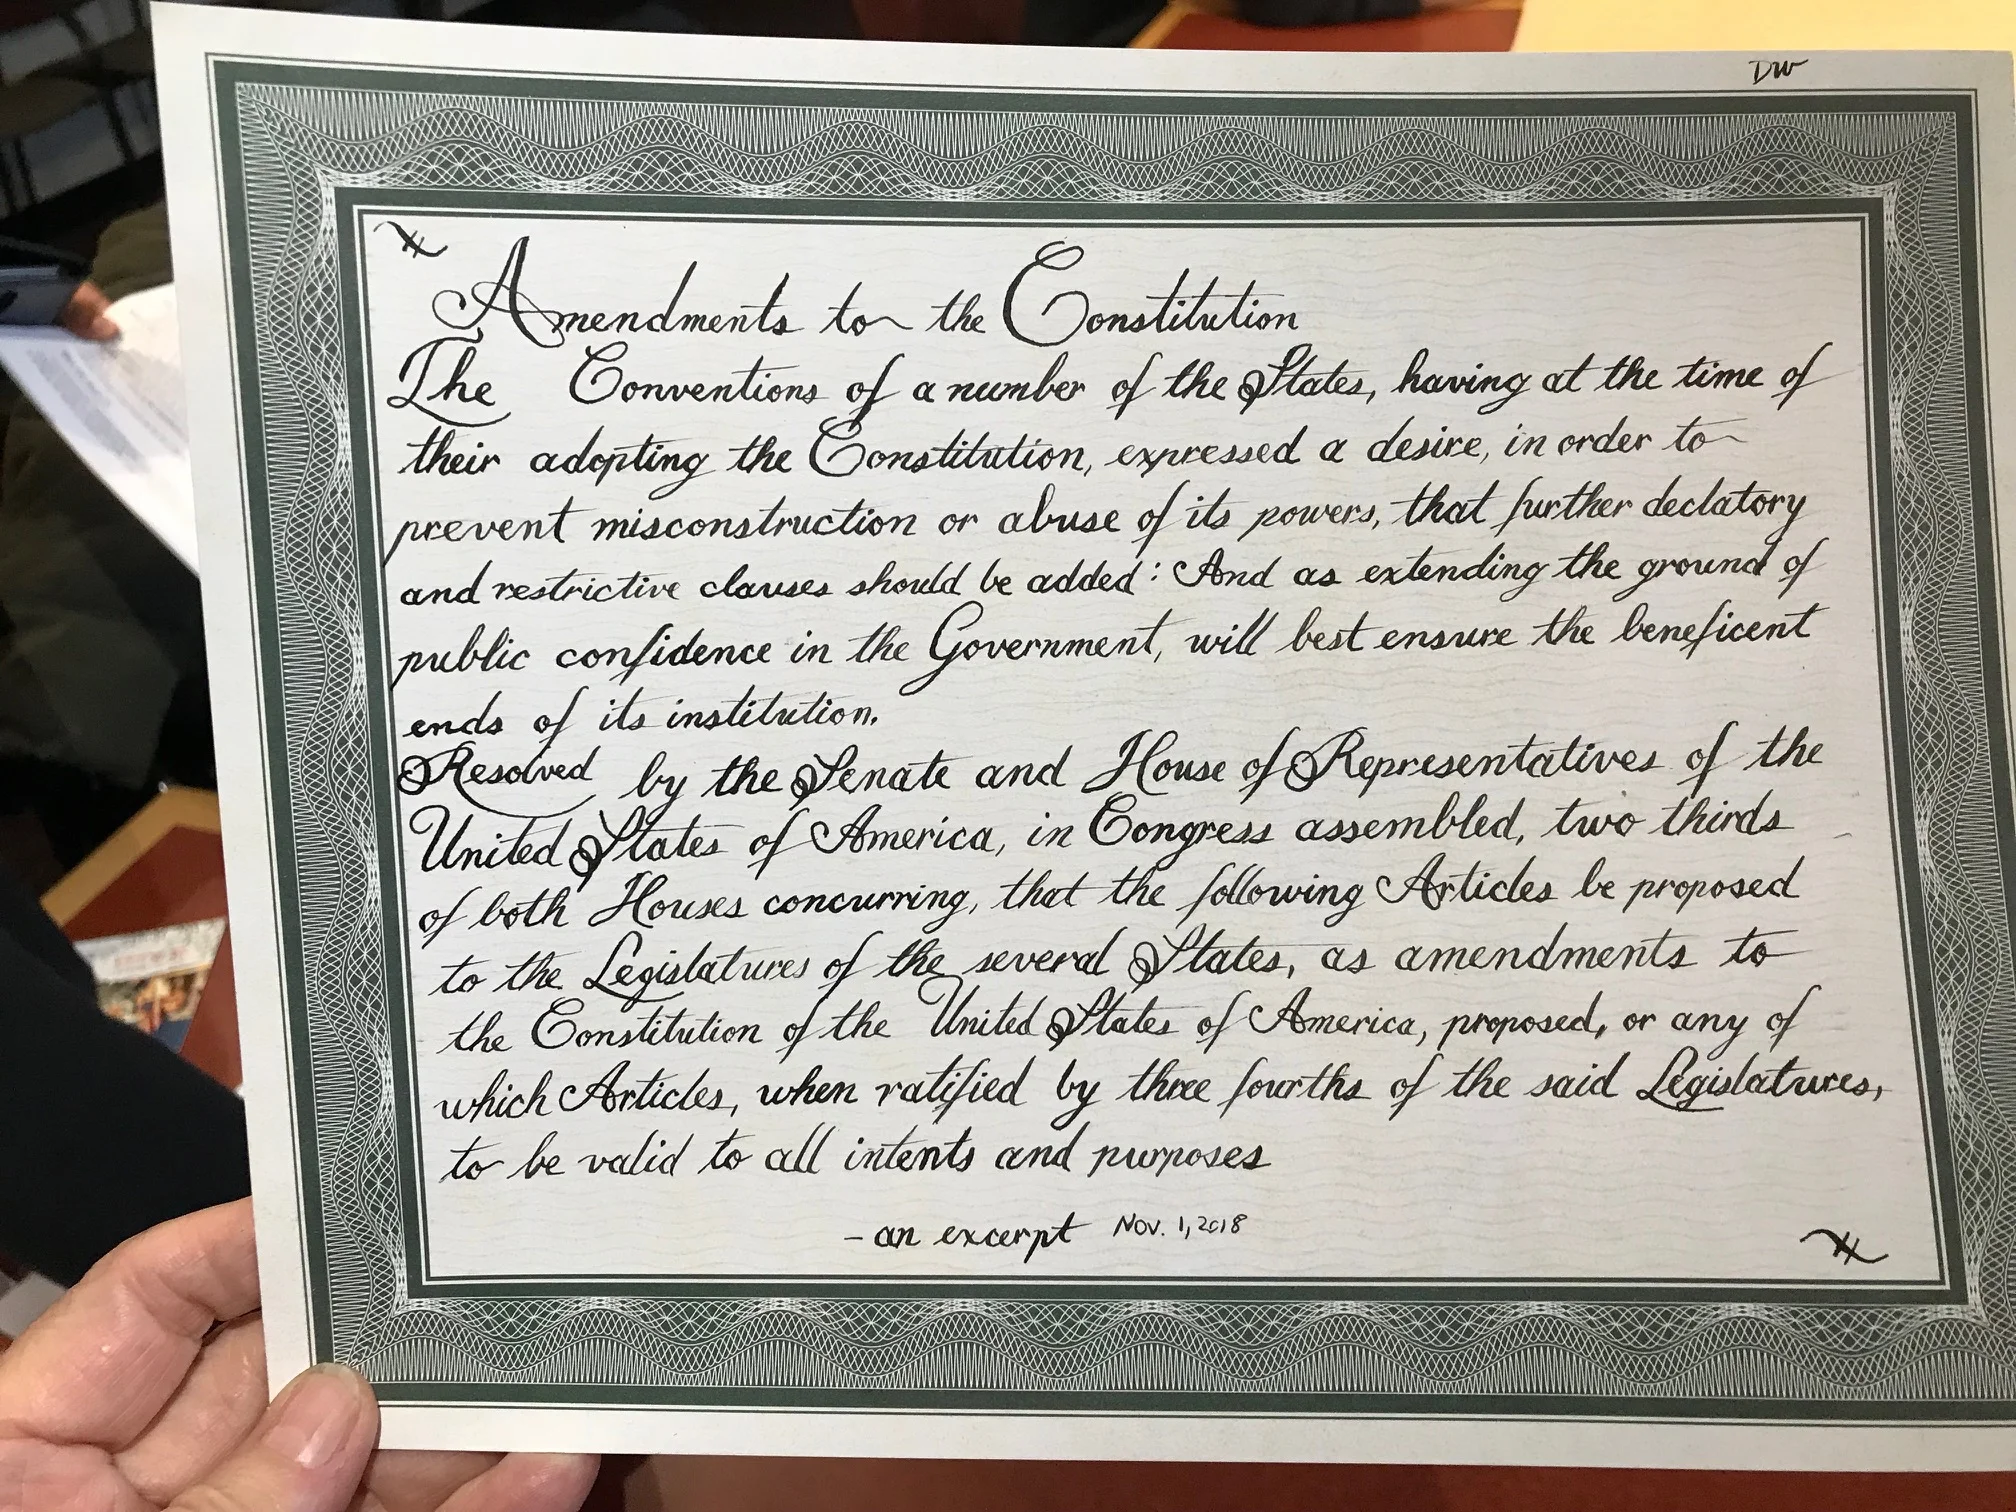 DW
Amendments to the Constitution
The Conventions of a number of the States, having at the time of
their adopting the Constitution, expressed a desire, in order to
prevent misconstruction or abuse of its powers, that further declatory
and restrictive clauses should be added: And as extending the ground of
public confidence in the Government, will best ensure the beneficent
ends of its institution.
Resolved by the Senate and House of Representatives of the
United States of America, in Congress assembled, two thirds
of both Houses concurring, that the following Articles be proposed
to the Legislatures of the several States, as amendments to
the Constitution of the United States of America, proposed, or any of
which Articles, when ratified by three fourths of the said Legislatures,
to be valid to all intents and purposes
- an excerpt Nov. 1, 2018